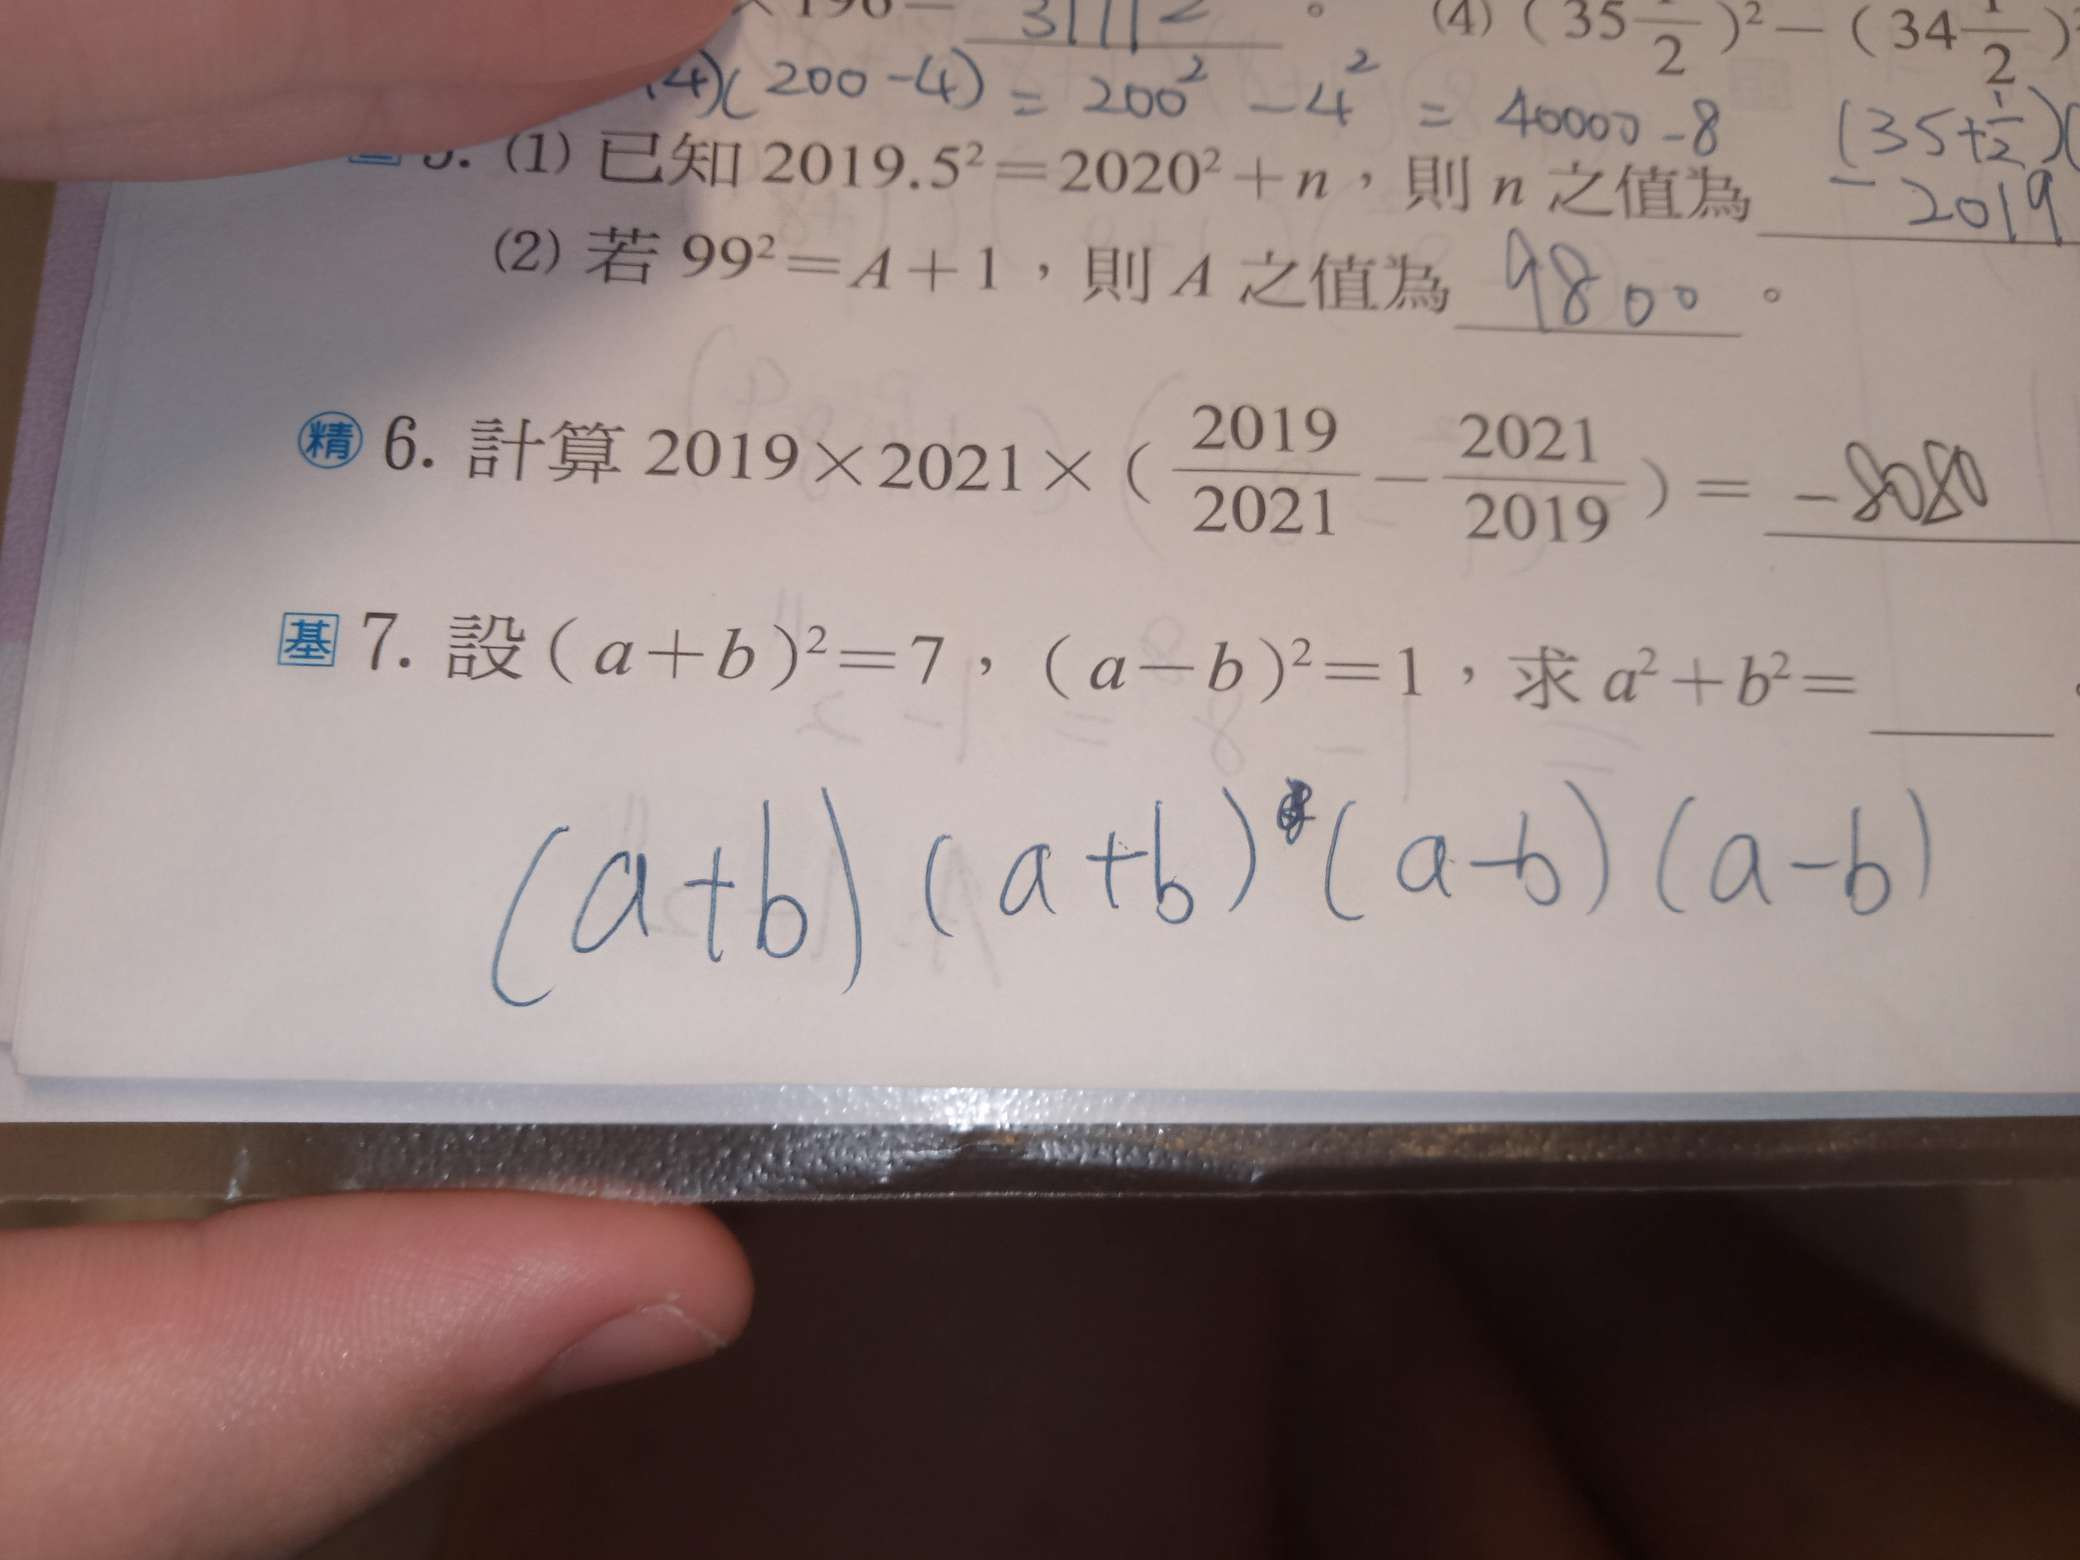 ×196= 31112 。 (4) (35 1/2)²-(34 1/2)²
4)(200-4) = 200² - 4² = 40000-8 (35+1/2)(
(1) 已知 2019.5²=2020²+n,則 n 之值為 -2019
(2) 若 99²=A+1,則 A 之值為 9800 。
精 6. 計算 2019×2021×(2019/2021-2021/2019)= -8080
基 7. 設(a+b)²=7,(a-b)²=1,求 a²+b²=
(a+b)(a+b) (a-b)(a-b)